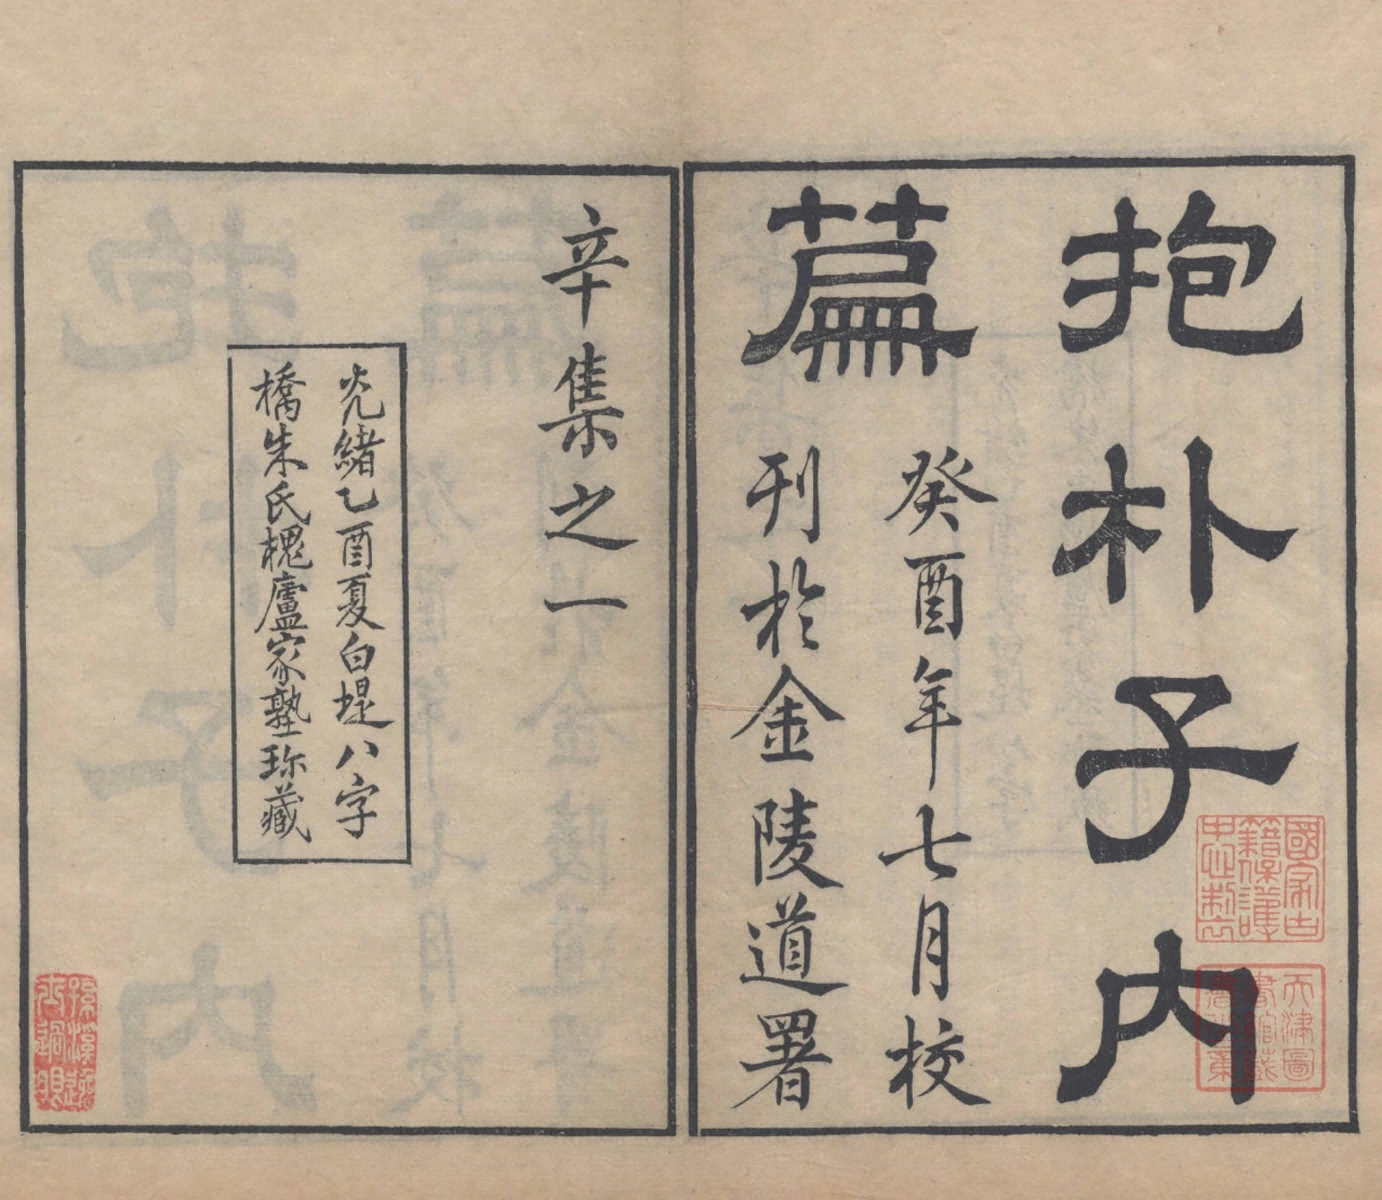 抱朴子內
篇
癸酉年七月校
刊於金陵道署
國家古
籍保護
中心製
天津圖
書館藏
辛集之一
光緒乙酉夏白堤八字
橋朱氏槐廬家塾珍藏